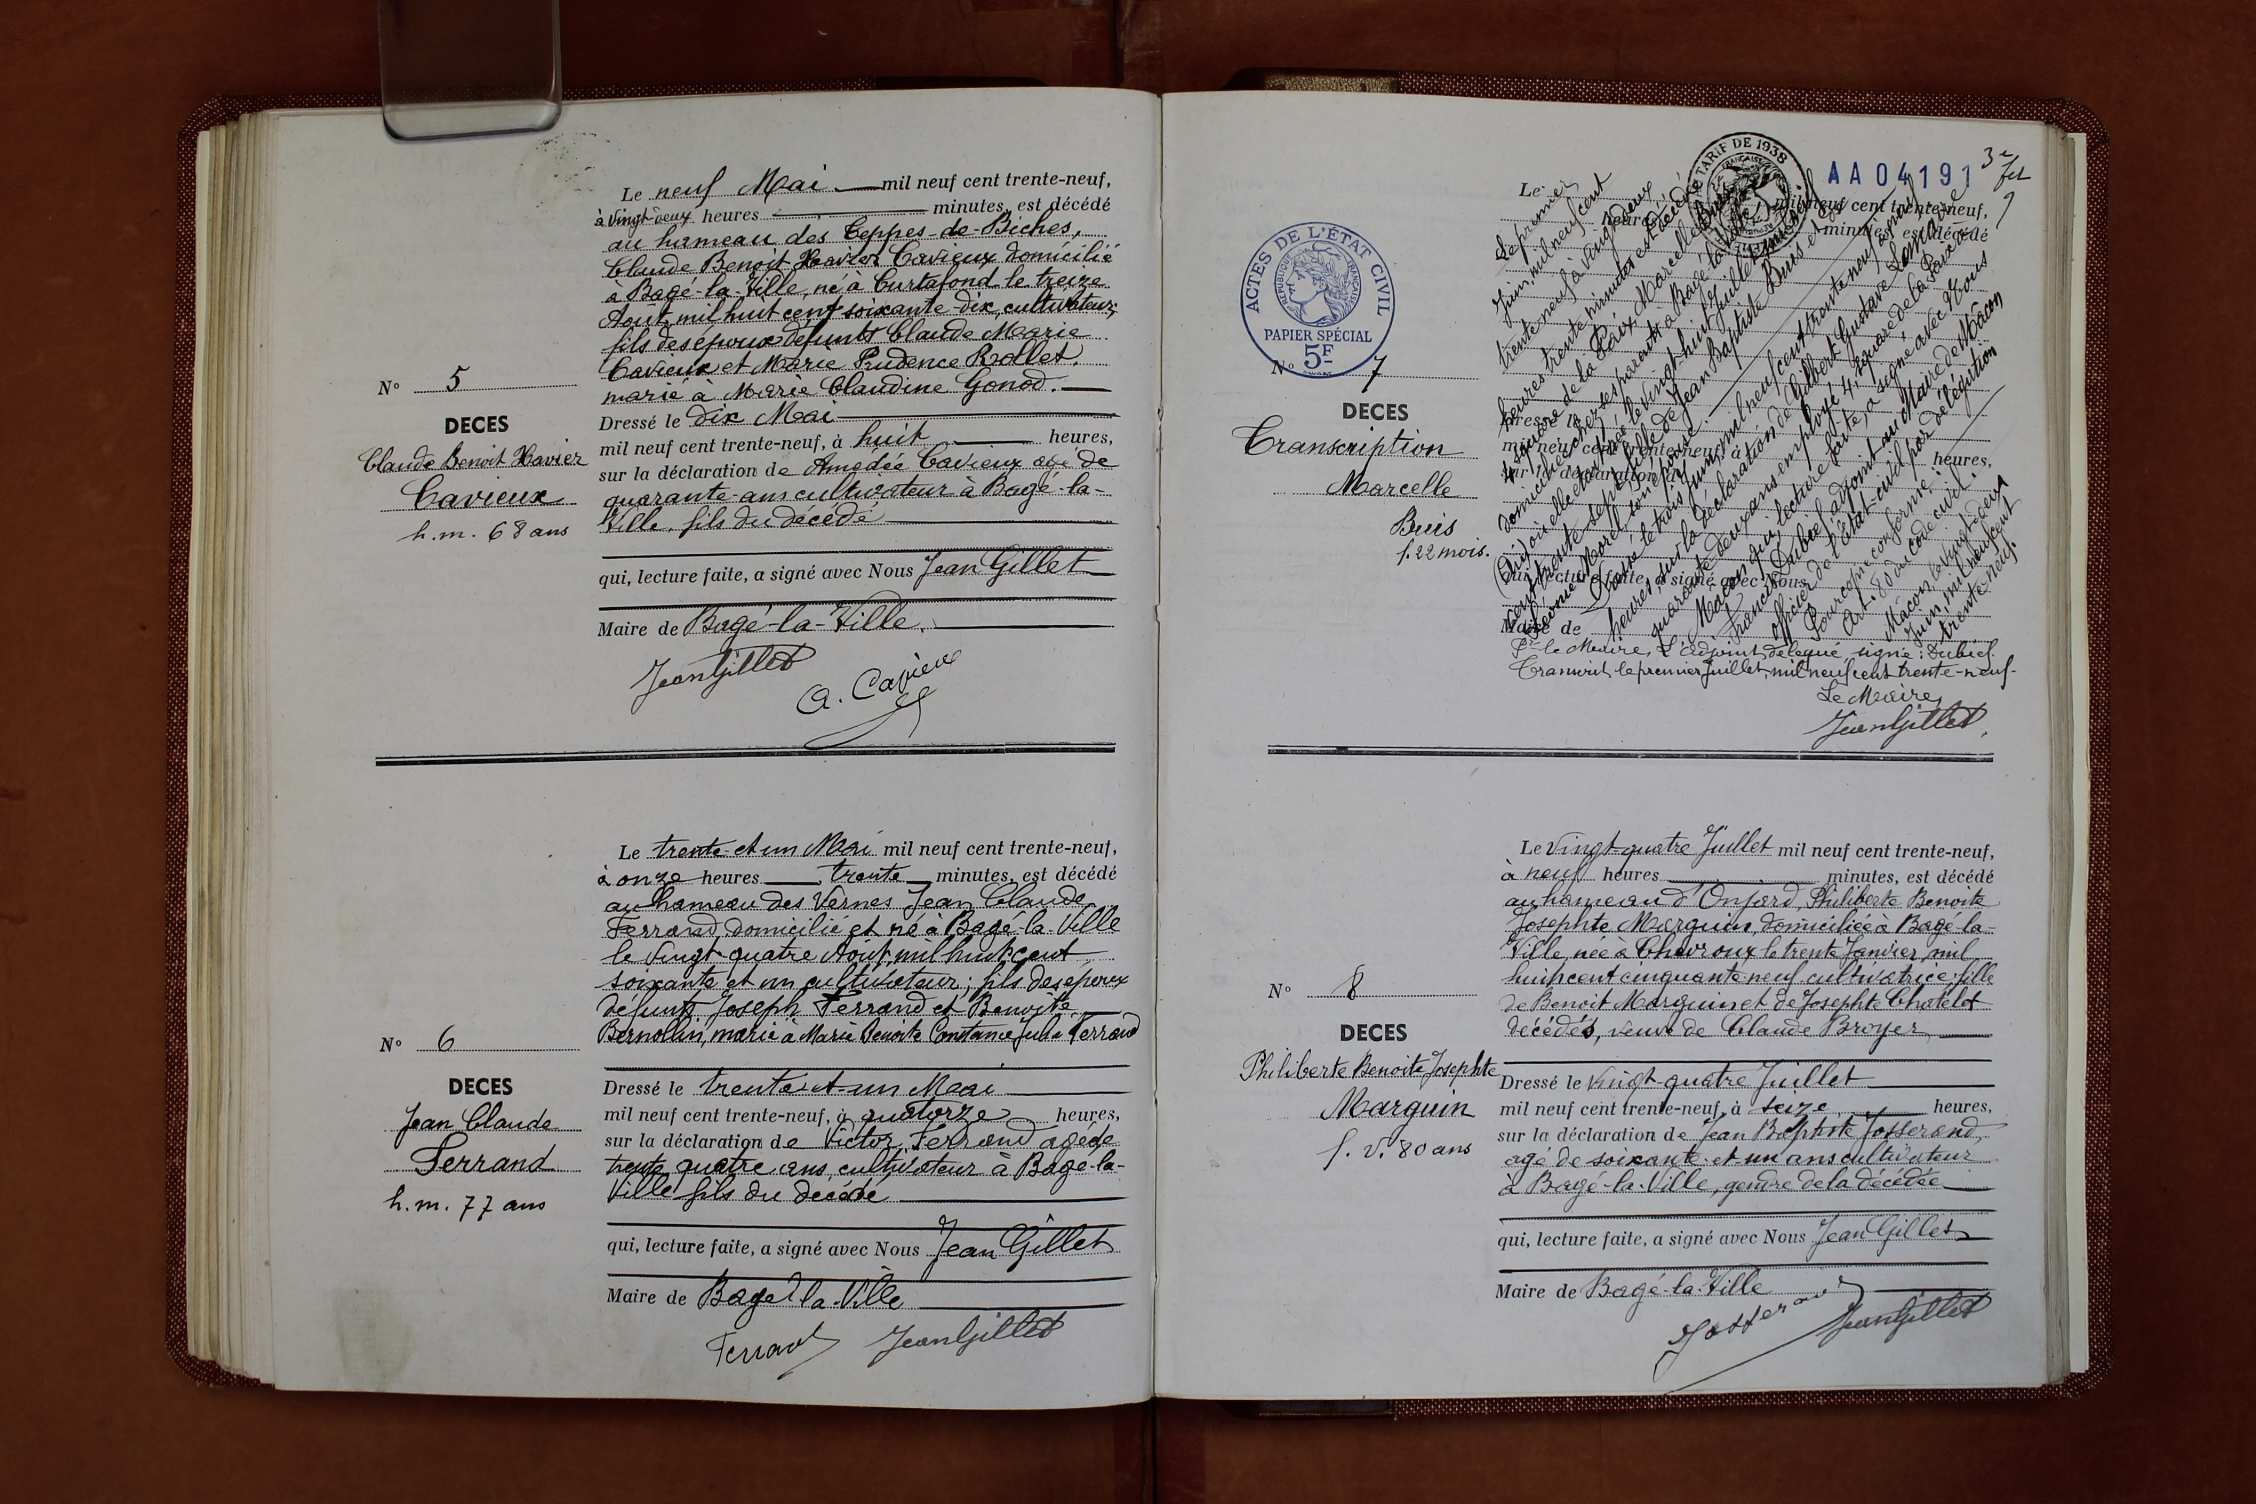 Le neuf Mai mil neuf cent trente-neuf,
à vingt deux heures minutes, est décédé
au hameau des Teppes-de-Biches,
Claude Benoit Xavier Cavieux domicilié
à Bagé-la-Ville, né à Curtafond le treize
Aout mil huit cent soixante dix, cultivateur,
fils des époux défunts Claude Marie
Cavieux et Marie Prudence Rollet,
marié à Marie Claudine Gonod.
N° 5
DECES
Claude Benoit Xavier
Cavieux
h.m. 68 ans
Dressé le dix Mai
mil neuf cent trente-neuf, à huit heures,
sur la déclaration de Amédée Cavieux agé de
quarante ans cultivateur à Bagé-la-
Ville, fils du décédé
qui, lecture faite, a signé avec Nous Jean Gillet
Maire de Bagé-la-Ville.
Jean Gillet
A. Cavieux
Le trente et un Mai mil neuf cent trente-neuf,
à onze heures trente minutes, est décédé
au hameau des Vernes Jean Claude
Ferrand, domicilié et né à Bagé-la-Ville
le vingt-quatre Aout mil huit cent
soixante et un cultivateur; fils des époux
défunts Joseph Ferrand et Benoite
Bernollin, marié à Marie Benoite Constance Julie Ferrand
N° 6
DECES
Jean Claude
Ferrand
h.m. 77 ans
Dressé le trente-et-un Mai
mil neuf cent trente-neuf, à quatorze heures,
sur la déclaration de Victor Ferrand agé de
trente quatre ans, cultivateur à Bagé-la-
Ville fils du décédé
qui, lecture faite, a signé avec Nous Jean Gillet
Maire de Bagé la-Ville
Ferrand Jean Gillet
TARIF DE 1938
AA04191
3e fet
ACTES DE L'ÉTAT CIVIL
RÉPUBLIQUE FRANÇAISE
PAPIER SPÉCIAL
5F
N° 7
DECES
Transcription
Marcelle
Buis
f. 22 mois.
Le mil neuf cent trente-neuf,
heures minutes, est décédé
Dressé le
mil neuf cent trente-neuf, à heures,
sur la déclaration de
qui, lecture faite, a signé avec Nous
Maire de
Le premier
Juin, mil neuf cent
trente neuf à vingt deux
heures trente minutes est décédée
4 square de la Paix, Marcelle Buis
domiciliée chez ses parents à Bagé la Ville
(Ain) où elle est née le vingt-huit Juillet mil neuf
cent trente sept, fille de Jean Baptiste Buis et de
Morel, son épouse.
Dressé le trois Juin, mil neuf cent trente neuf à neuf
heures, sur la déclaration de Gilbert Gustave
quarante deux ans employé 4, square de la Paix à
Macon qui, lecture faite, a signé avec Nous
Francis Dubief, adjoint au Maire de Mâcon
officier de l'état-civil par délégation
Pour copie conforme:
Art. 80 du Code civil.
Mâcon, le vingt deux
Juin, mil neuf cent
trente-neuf.
Pr le Maire, L'adjoint délégué, signé: Dubief.
Transcrit le premier Juillet, mil neuf cent trente-neuf-
Le Maire,
Jean Gillet
Le Vingt-quatre Juillet mil neuf cent trente-neuf,
à neuf heures minutes, est décédé
au hameau d'Onjard, Philiberte Benoite
Josephte Marguin, domiciliée à Bagé-la-
Ville, née à Chevroux le trente Janvier mil
huit cent cinquante-neuf cultivatrice; fille
de Benoit Marguin et de Josephte Chatelet
décédés, veuve de Claude Broyer
N° 8
DECES
Philiberte Benoite Josephte
Marguin
f. v. 80 ans
Dressé le Vingt-quatre Juillet
mil neuf cent trente-neuf, à seize heures,
sur la déclaration de Jean Baptiste Josserand,
agé de soixante et un ans cultivateur
à Bagé-la-Ville, gendre de la décédée
qui, lecture faite, a signé avec Nous Jean Gillet
Maire de Bagé-la-Ville
Josserand Jean Gillet